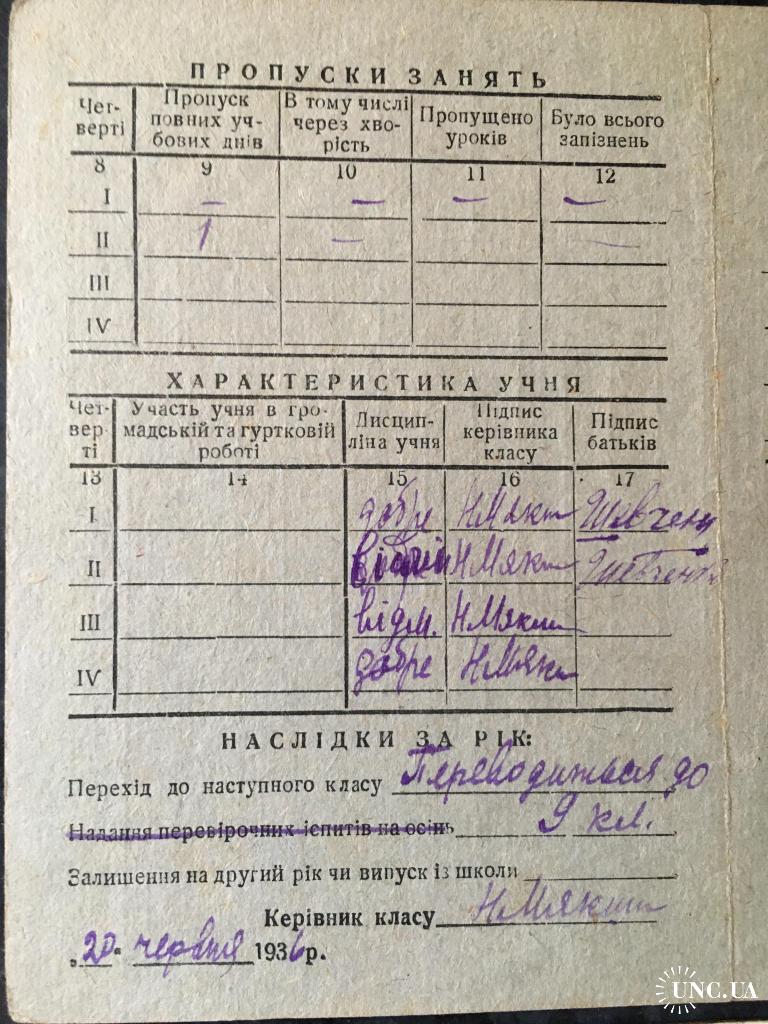 ПРОПУСКИ ЗАНЯТЬ
Чет-
верті
Пропуск
повних уч-
бових днів
В тому числі
через хво-
рість
Пропущено
уроків
Було всього
запізнень
8 9 10 11 12
I — — — —
II 1 — —
III
IV
ХАРАКТЕРИСТИКА УЧНЯ
Чет-
вер-
ті
Участь учня в гро-
мадській та гуртковій
роботі
Дисцип-
ліна учня
Підпис
керівника
класу
Підпис
батьків
13 14 15 16 17
I добре НМякш Шевченк
II НМякш Шевченк
III відм. НМякш
IV добре НМякш
НАСЛІДКИ ЗА РІК:
Перехід до наступного класу Переводиться до
Надання перевірочних іспитів на осінь 9 кл.
Залишення на другий рік чи випуск із школи
Керівник класу НМякш
„20“ червня 1936 р.
UNC.UA